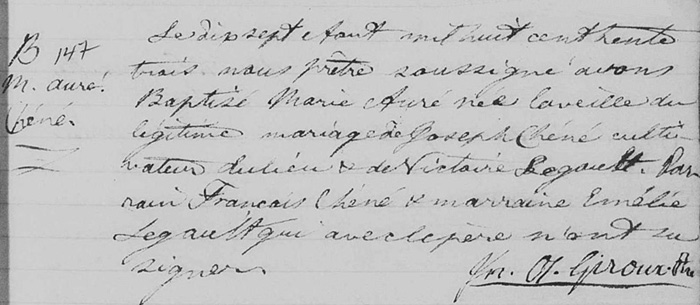 B 147
M. Auré.
Chéné.
Le dix sept Aout mil huit cent trente
trois nous prêtre soussigné avons
Baptisé Marie Auré née la veille du
légitime mariage de Joseph Chéné culti
vateur du lieu & de Victoire Legault. Par
rain Francois Chéné & marraine Emélie
Legault qui avec le père n'ont su
signer.
Giroux Ptre